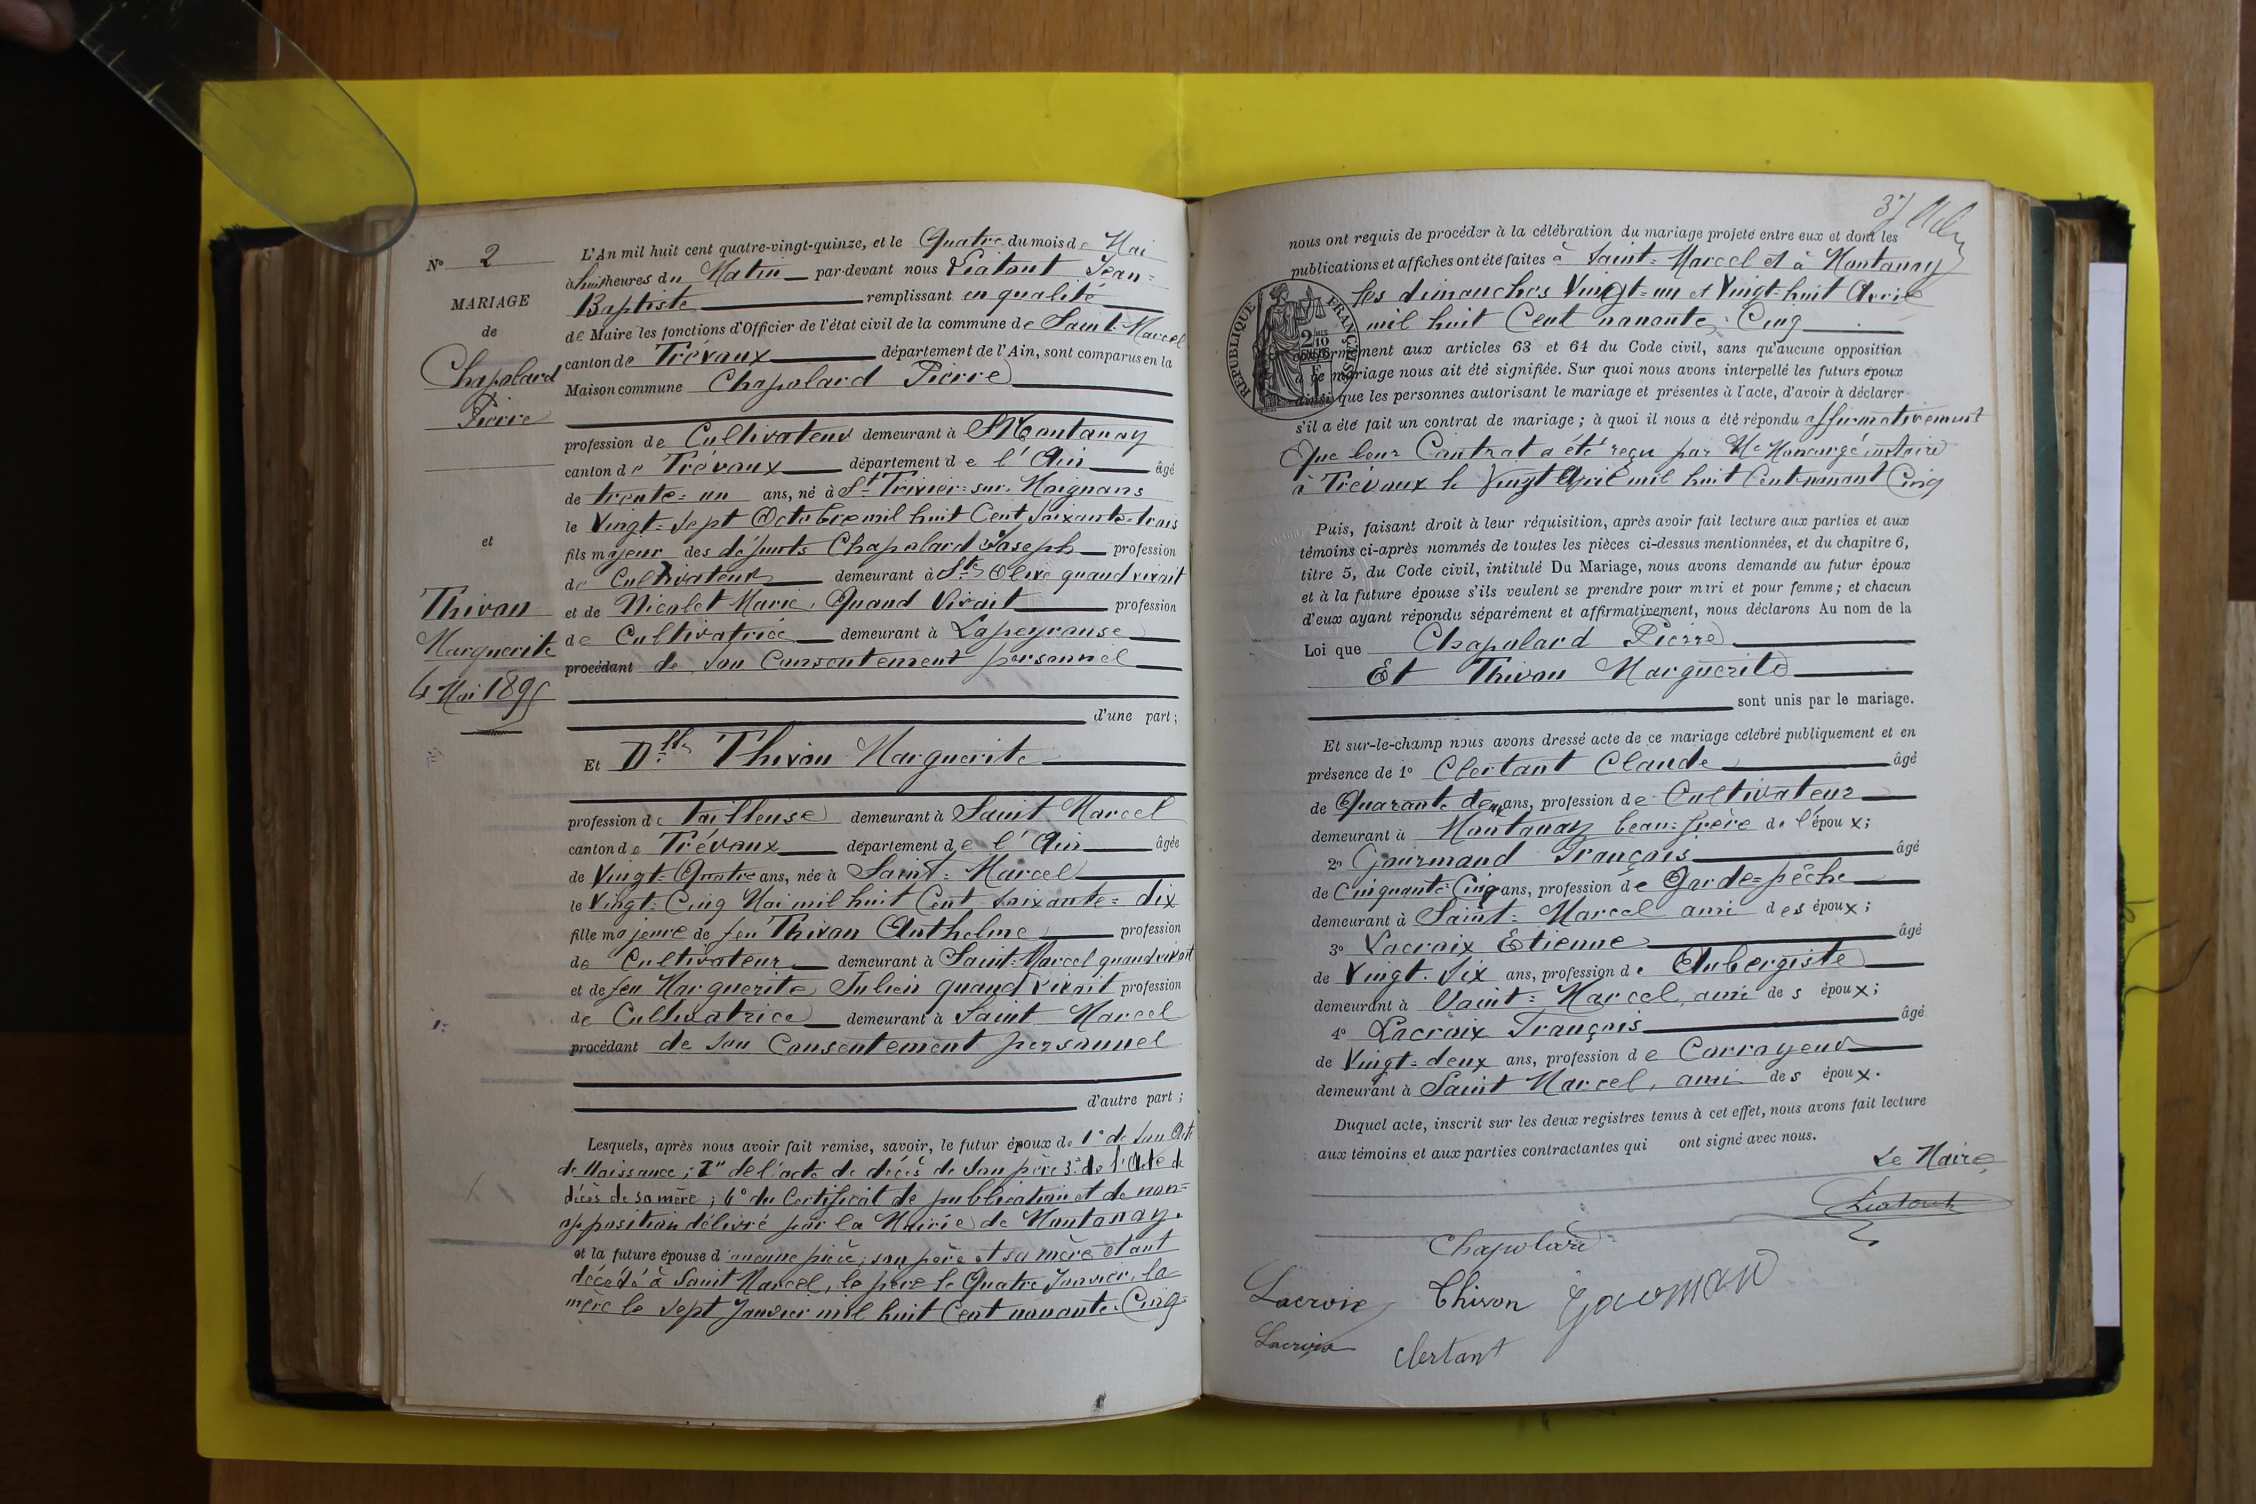 N° 2
MARIAGE
de
Chapolard
Pierre
et
Thivon
Marguerite
4 Mai 1895
L'An mil huit cent quatre-vingt-quinze, et le Quatre du mois de Mai
à huit heures du Matin par-devant nous Liatout Jean-
Baptiste remplissant en qualité
de Maire les fonctions d'Officier de l'état civil de la commune de Saint-Marcel
canton de Trévoux département de l'Ain, sont comparus en la
Maison commune Chapolard Pierre
profession de Cultivateur demeurant à Montanay
canton de Trévoux département de l'Ain âgé
de trente-un ans, né à St Trivier-sur-Moignans
le Vingt-sept Octobre mil huit Cent soixante-trois
fils majeur des défunts Chapolard Joseph profession
de Cultivateur demeurant à Ste Olive quand vivait
et de Nicolet Marie, Quand Vivait profession
de Cultivatrice demeurant à Lapeyrouse
procédant de son Consentement personnel
d'une part;
Et Dlle Thivon Marguerite
profession de Tailleuse demeurant à Saint Marcel
canton de Trévoux département de l'Ain âgée
de Vingt-Quatre ans, née à Saint-Marcel
le Vingt-Cinq Mai mil huit Cent soixante-dix
fille majeure de feu Thivon Anthelme profession
de Cultivateur demeurant à Saint-Marcel quand vivait
et de feu Marguerite Julien quand vivait profession
de Cultivatrice demeurant à Saint Marcel
procédant de son Consentement personnel
d'autre part;
Lesquels, après nous avoir fait remise, savoir, le futur époux de 1° de son Acte
de Naissance; 2° de l'acte de décès de son père 3° de l'Acte de
décès de sa mère; 4° du Certificat de publication et de non-
opposition délivré par la Mairie de Montanay.
et la future épouse d'aucune pièce, son père et sa mère étant
décédé à Saint Marcel, le père le Quatre Janvier, la
mère le sept Janvier mil huit Cent nonante-Cinq
37
nous ont requis de procéder à la célébration du mariage projeté entre eux et dont les
publications et affiches ont été faites à Saint-Marcel et à Montanay
les dimanches Vingt-un et Vingt-huit Avril
mil huit Cent nonante-Cinq
conformément aux articles 63 et 64 du Code civil, sans qu'aucune opposition
à ce mariage nous ait été signifiée. Sur quoi nous avons interpellé les futurs époux
ainsi que les personnes autorisant le mariage et présentes à l'acte, d'avoir à déclarer
s'il a été fait un contrat de mariage; à quoi il nous a été répondu affirmativement
Que leur Contrat a été reçu par Me Moncorgé notaire
à Trévoux le Vingt Avril mil huit Cent nonant Cinq
RÉPUBLIQUE FRANÇAISE
2/10
Puis, faisant droit à leur réquisition, après avoir fait lecture aux parties et aux
témoins ci-après nommés de toutes les pièces ci-dessus mentionnées, et du chapitre 6,
titre 5, du Code civil, intitulé Du Mariage, nous avons demandé au futur époux
et à la future épouse s'ils veulent se prendre pour mari et pour femme; et chacun
d'eux ayant répondu séparément et affirmativement, nous déclarons Au nom de la
Loi que Chapolard Pierre
Et Thivon Marguerite
sont unis par le mariage.
Et sur-le-champ nous avons dressé acte de ce mariage célébré publiquement et en
présence de 1° Clertant Claude âgé
de Quarante deux ans, profession de Cultivateur
demeurant à Montanay beau-frère de l'époux;
2° Gourmand François âgé
de Cinquante-Cinq ans, profession de Garde-pêche
demeurant à Saint-Marcel ami des époux;
3° Lacroix Etienne âgé
de Vingt-six ans, profession de Aubergiste
demeurant à Saint-Marcel, ami des époux;
4° Lacroix François âgé
de Vingt-deux ans, profession de Corroyeur
demeurant à Saint Marcel, ami des époux.
Duquel acte, inscrit sur les deux registres tenus à cet effet, nous avons fait lecture
aux témoins et aux parties contractantes qui ont signé avec nous.
Le Maire,
Liatout
Chapolard
Lacroix Thivon Gourman
Lacroix Clertant